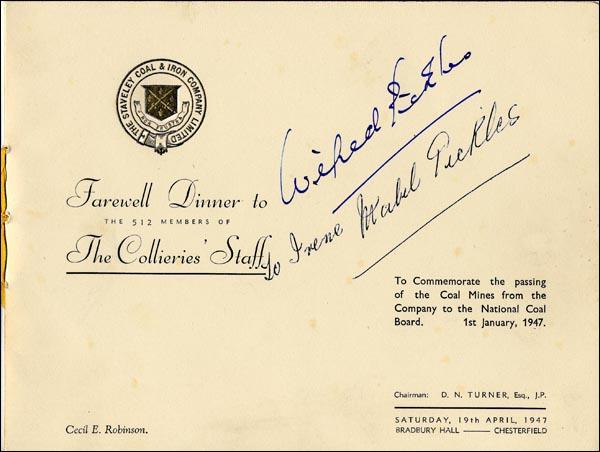 THE STAVELEY COAL & IRON COMPANY LIMITED
Wilfred Pickles
Farewell Dinner to
THE 512 MEMBERS OF
The Collieries' Staff
To Irene Mabel Pickles
To Commemorate the passing
of the Coal Mines from the
Company to the National Coal
Board. 1st January, 1947.
Chairman: D. N. TURNER, Esq., J.P.
SATURDAY, 19th APRIL, 1947
BRADBURY HALL —— CHESTERFIELD
Cecil E. Robinson.